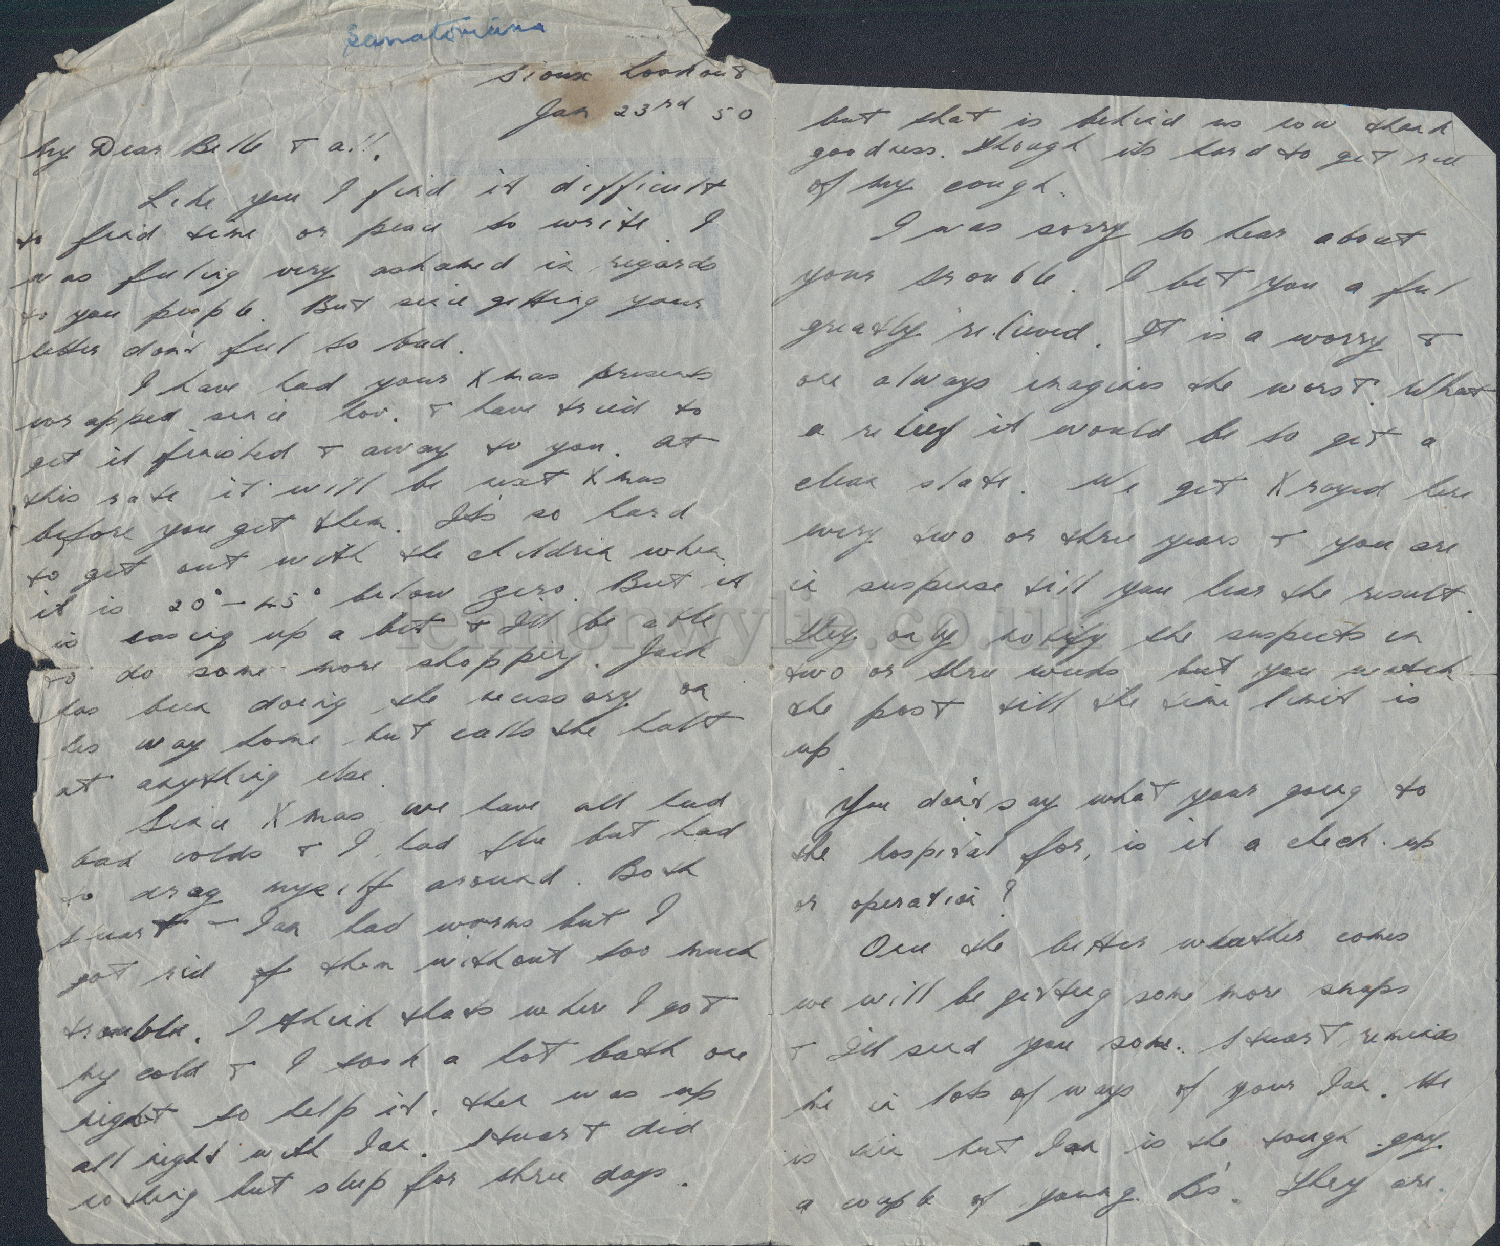 Sanatoriums
Sioux Lookout
Jan 23rd 50
My Dear Belle & all.
Like you I find it difficult
to find time or peace to write. I
was feeling very ashamed in regards
to you people. But since getting your
letter don't feel so bad.
I have had your Xmas presents
wrapped since Nov. & have tried to
get it finished & away to you. At
this rate it will be next Xmas
before you get them. It's so hard
to get out with the children when
it is 20° - 45° below zero. But it
is easing up a bit & I'll be able
to do some more shopping. Jack
has been doing the necessary on
his way home but calls the halt
at anything else.
Since Xmas we have all had
bad colds & I had flu but had
to drag myself around. Both
Stuart - Ian had worms but I
got rid of them without too much
trouble. I think thats where I got
my cold & I took a hot bath one
night to help it. then was up
all night with Ian. Stuart did
nothing but sleep for three days.
but that is behind us now thank
goodness. Though its hard to get rid
of my cough.
I was sorry to hear about
your trouble. I bet you a feel
greatly relieved. It is a worry &
one always imagines the worst. What
a relief it would be to get a
clean slate. We get Xrayed here
every two or three years & you are
in suspense till you hear the result.
They only notify the suspects in
two or three weeks but you watch
the post till the time limit is
up.
You don't say what your going to
the hospital for, is it a check-up
or operation?
Once the better wheather comes
we will be getting some more snaps
& I'll send you some. Stuart reminds
me in lots of ways of your Ian. He
is thin but Ian is the tough guy
a couple of young B's. They are.
lennonwylie.co.uk